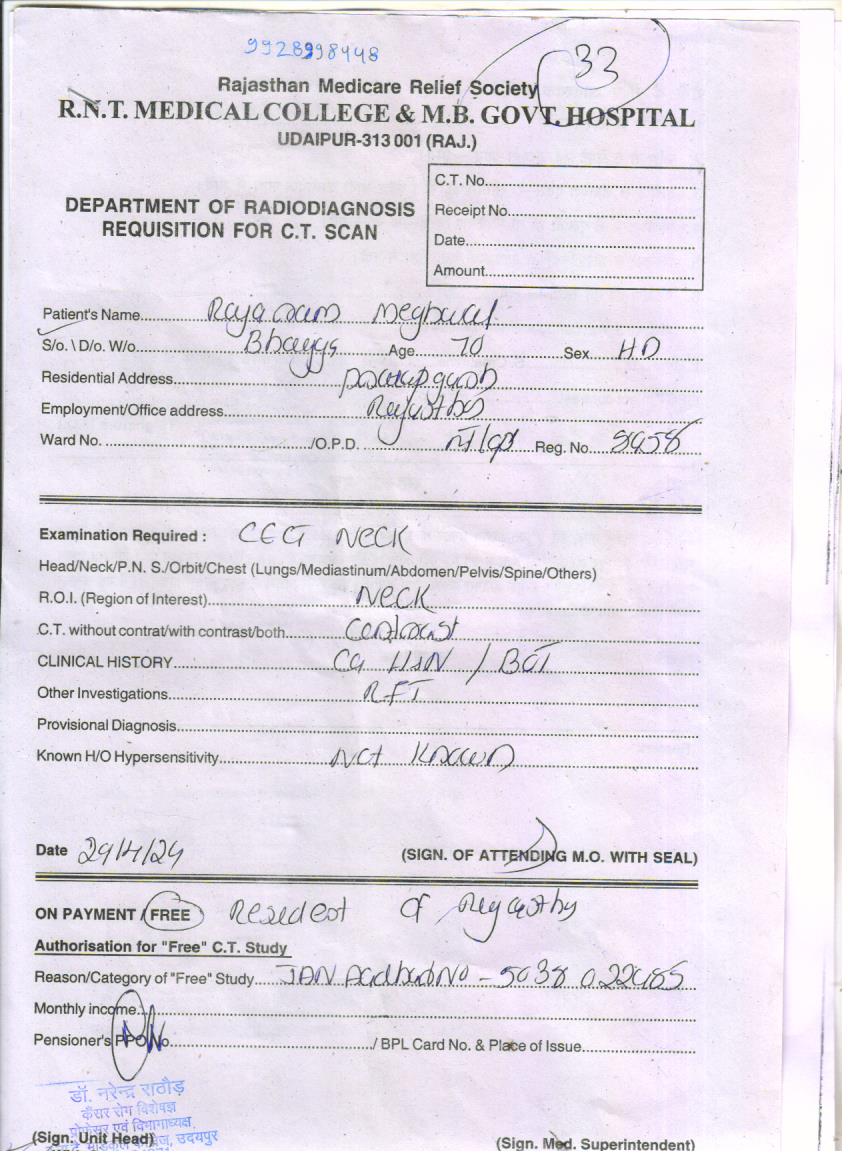 9928998448
33
Rajasthan Medicare Relief Society
R.N.T. MEDICAL COLLEGE & M.B. GOVT. HOSPITAL
UDAIPUR-313 001 (RAJ.)
C.T. No.
DEPARTMENT OF RADIODIAGNOSIS
Receipt No.
REQUISITION FOR C.T. SCAN
Date
Amount
Patient's Name Rajaram Meghwal
S/o. \ D/o. W/o Age 70 Sex
Residential Address
Employment/Office address
Ward No. /O.P.D. Reg. No.
Examination Required : CECT NECK
Head/Neck/P.N. S./Orbit/Chest (Lungs/Mediastinum/Abdomen/Pelvis/Spine/Others)
R.O.I. (Region of Interest) NECK
C.T. without contrat/with contrast/both Contrast
CLINICAL HISTORY Ca / BOT
Other Investigations RFT
Provisional Diagnosis
Known H/O Hypersensitivity Not Known
Date 29/4/24 (SIGN. OF ATTENDING M.O. WITH SEAL)
ON PAYMENT / FREE Resident of
Authorisation for "Free" C.T. Study
Reason/Category of "Free" Study JAN No -
Monthly income
Pensioner's PPO No. / BPL Card No. & Place of Issue
डॉ. नरेन्द्र राठौड़
कैंसर रोग विशेषज्ञ
प्रोफेसर एवं विभागाध्यक्ष
उदयपुर
(Sign. Unit Head) (Sign. Med. Superintendent)